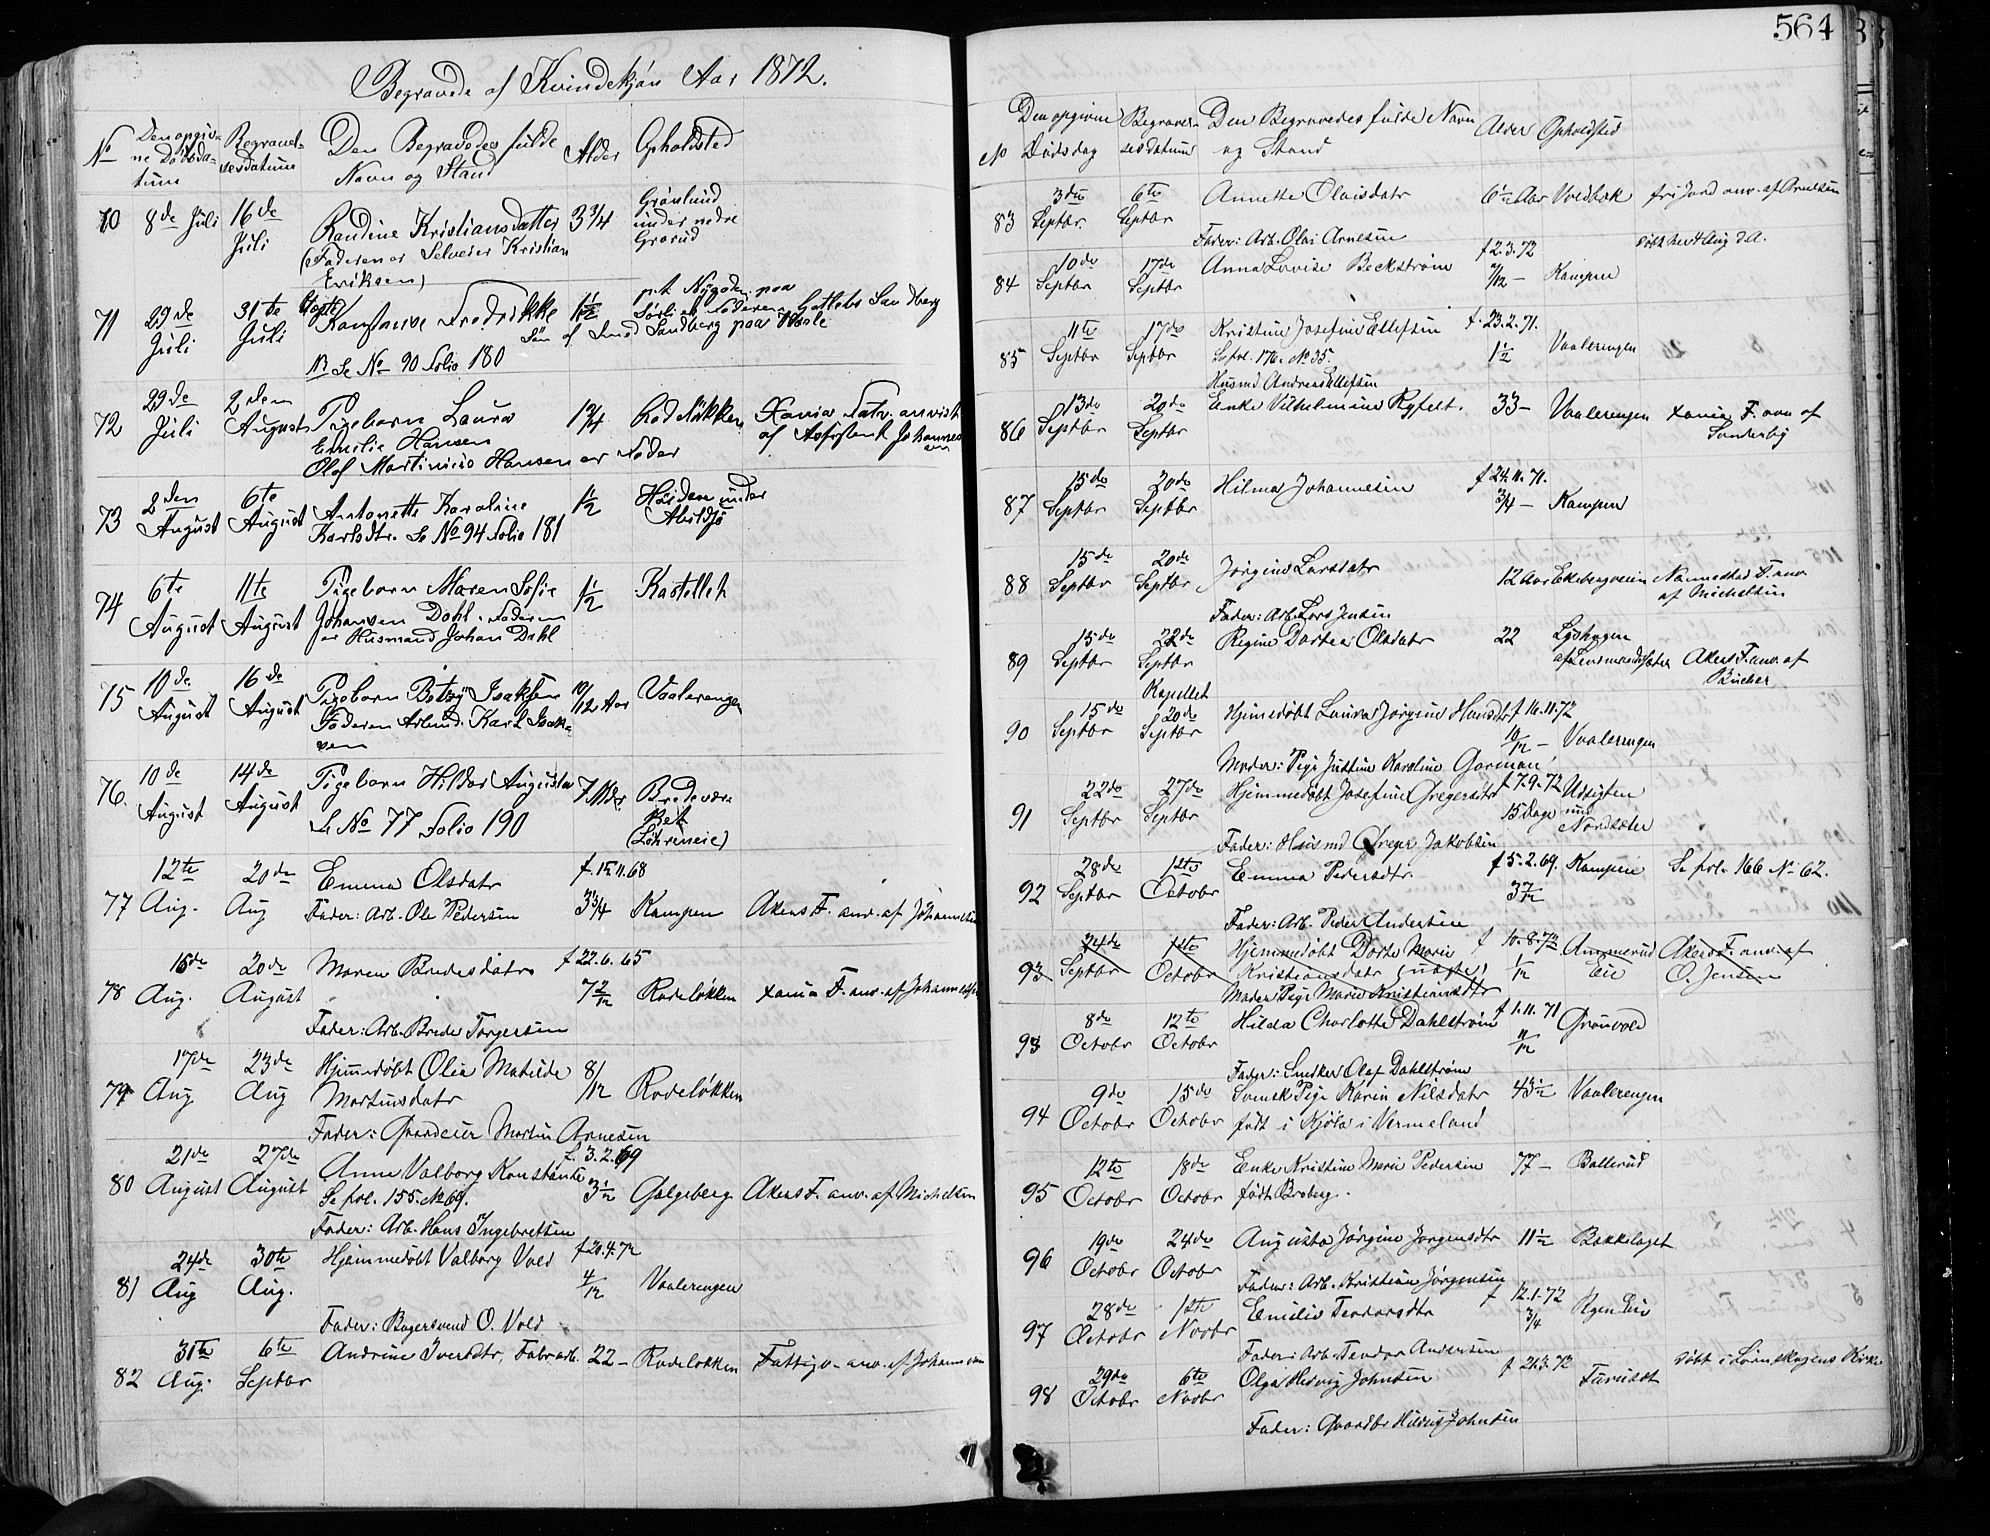 Begravede af Kvindekjøn Aar 1872.
No Den opgivne Dødsdatum Begravelsesdatum Den Begravedes fulde Navn og Stand Alder Opholdsted
70 8de Juli 16de Juli Randine Kristiansdatter 3 3/4 Grønlund under nedre Grorud
(Faderen er Selveier Kristian Eriksen)
71 29de Juli 31te Juli Konstanse Fredrikke 1 1/2
Sandberg paa
No Se No 90 Folio 180
72 29de Juli 2den August Pigebarn Laura 1 3/4 Rodeløkken Xania Fatv. anvist
Emilie Hansen af Johannesen
Olaf Martinius Hansen er Fader
73 2den August 6te August Antonette Karoline 1 1/2 Høiden under Abildsø
Karlsdtr. Se No 94 Folio 181
74 6te August 11te August Pigebarn Maren Sofie 1 1/2 Kastellet
Johansen Dahl. Faderen
er Husmand Johan Dahl
75 10de August 16de August Pigebarn Betzy Isaksen 10/12 Aar Vaalerengen
Faderen Arbmd. Karl Isaksen
76. 10de August 14de August Pigebarn Hilda Augusta 7 Mdr Bredevære
Se No 77 Folio 190
(Løhreneie)
77 12te Aug. 20de Aug Emma Olsdatr f. 15.11.68
Fader: Arb. Ole Pedersen 3 3/4 Kampen Akers F. anv. af Johannesen
78 16de Aug. 20de August Maren Bredesdatr f 22.6.65
7 2/12 Rodeløkken Xania F. anv. af Johannesen
Fader: Arb. Brede Torgersen
79 17de Aug 23de Aug Hjemmedøbt Olia Matilde 8/12 Rodeløkken
Martinsdatr
Fader: Gaardeier Martin Arnesen
80 21de August 27de August Anna Valborg Konstanse f. 3.2.69
Se fol. 155. No 69. 3 1/2 Galgeberg Akers F. anv. af Michelsen
Fader: Arb. Hans Ingebretsen
81 24de Aug 30te Aug. Hjemmedøbt Valborg Vold f 20.4.72
4/12 Vaalerengen
Fader: Bagersvend O. Vold
82 31te Aug. 6te Septbr Andrine Iversdtr, Fabrarb. 22 – Rodeløkken Fattigv. anv. af Johannesen
564
No Den opgivne Dødsdag Begravelsesdatum Den Begravedes fulde Navn og Stand Alder Opholdssted
83 3die Septbr. 6te Septbr Annette Olaisdatr 6 1/2 Aar Voldløk fri Jord anv. af Arnesen
Fader: Arb. Olai Arnesen
84 10de Septbr 17de Septbr Anna Lovise Beckstrøm f 2.3.72 Døbt den 4 Aug d.A.
/12 – Kampen
85 11te Septbr 17de Septbr Kristine Josefine Ellefsen f. 23.2.71.
Se fol. 176. No 35. 1 1/2 Vaalerengen
Husmd Andreas Ellefsen
86 13de Septbr 20de Septbr Enke Vilhelmine Ryfelt. 33 – Vaalerengen Xania F. anv af Sunderby
87 15de Septbr 20de Septbr Hilma Johannesen f 24.11.71.
3/4 – Kampen
88 15de Septbr 20de Septbr Jørgine Larsdatr 12 Aar Ekebergveien Nannestad F. anv. af Michelsen
Fader: Arb. Lars Jensen
89 15de Septbr 22de Septbr Regine Dortea Olsdatr 22 Lyshaugen
Akers F. anv. af Bücher
Kapellet
90 15de Septbr 20de Septbr Hjemedøbt Laura Jørgine Hansdtr f 16.11.72
10/12 – Vaalerengen
Moder: Pige Justine Karoline Gorman
91 22de Septbr 27de Septbr Hjemmedøbt Josefine Gregersdtr f 7.9.72 Udsigten
15 Dage und Nordsæter
Fader: Husmd Greger Jakobsen
92 28de Septbr 1ste Octobr Emma Pedersdtr. f 5.2.69. Kampen Se fol. 166 No 62.
3 7/12
Fader: Arb. Peder Andersen
93 24de Septbr 1ste Octobr Hjemmedøbt Dorte Marie f 10.8.72 Ammerud Eie Akers F. anv. af O. Jensen
Kristiansdatr (uægte) 1/12
Moder Pige Marie Kristiansdtr
93 8de Octobr 12te Octobr Hilda Charlotte Dahlstrøm f 1.11.71 Grønvold
11/12
Fader: Snedker Olaf Dahlstrøm
94 9de Octobr 15de Octobr Svensk Pige Karin Nilsdatr 43 1/2 Vaalerengen
født i Kjøla i Vermeland
95 12te Octobr 18de Octobr Enke Kristine Marie Pedersen 77 – Ballerud
født Broberg.
96 19de Octobr 24de Octobr Augusta Jørgine Jørgensdtr 11 1/2 Bækkelaget
Fader: Arb. Kristian Jørgensen
97 28de Octobr 1ste Novbr Emilie Teodorsdtr f 12.1.72 Ryen Eie
3/4
Fader: Arb. Teodor Andersen
98 29de Octobr 6te Novbr Olga Hedvig Johnsen f 21.3.72 Furuset Døbt i Lørenskogens Kirke
Fader: Gaardbr Johnsen